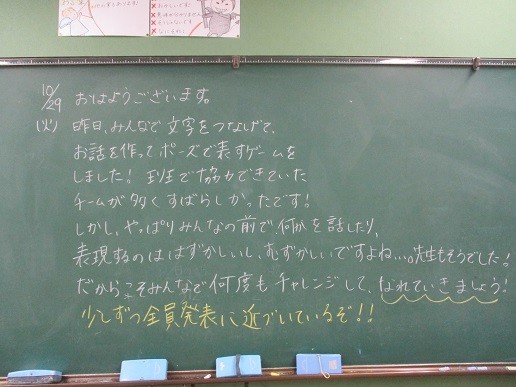 10/29
(火)
おはようございます。
昨日、みんなで文字をつなげて、
お話を作ってポーズで表すゲームを
しました！班で協力できていた
チームが多くすばらしかったです！
しかし、やっぱりみんなの前で何かを話したり、
表現するのははずかしいし、むずかしいですよね…。先生もそうでした！
だからこそみんなで何度もチャレンジして、なれていきましょう！
少しずつ全員発表に近づいているぞ！！